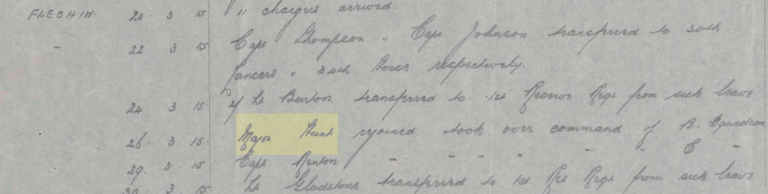 FLECHIN. 20 3 15 11 chargers arrived.
" 22 3 15 Capt Thompson & Capt Johnson transferred to 30th
Lancers & 34th Horse respectively.
24 3 15 2/Lt Burton transferred to 1st Reserve Regt from sick leave
26 3 15. Major Hunt rejoined took over command of B. Squadron
29 3 15 Capt Renton " " " " " C "
30 3 15 Lt Gladstone transferred to 1st Res Regt from sick leave